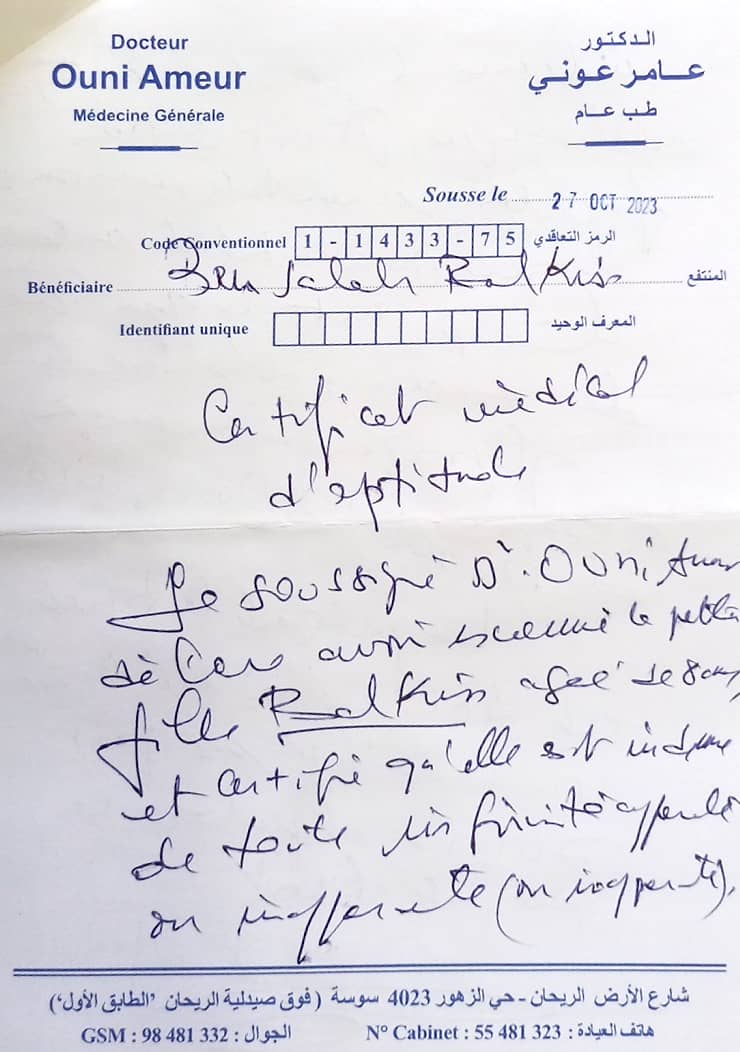 Docteur
Ouni Ameur
Médecine Générale
الدكتور
عامر عوني
طب عام
Sousse le 27 OCT 2023
Code Conventionnel 1-1433-75 الرمز التعاقدي
Bénéficiaire Ben Salah Balkiss المنتفع
Identifiant unique المعرف الوحيد
Certificat médical
d'aptitude
Je soussigné Dr. OUNI Ameur
déclare avoir examiné la petite
fille Balkiss agée de 8 ans
et certifié qu'elle est indemne
de toute infirmité apparente
ou inapparente (ou inapparente).
شارع الأرض الريحان - حي الزهور 4023 سوسة (فوق صيدلية الريحان 'الطابق الأول')
GSM : 98 481 332 : الجوال N° Cabinet : 55 481 323 : هاتف العيادة